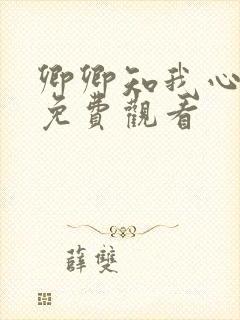 卿卿知我心
免費觀看
薛雙